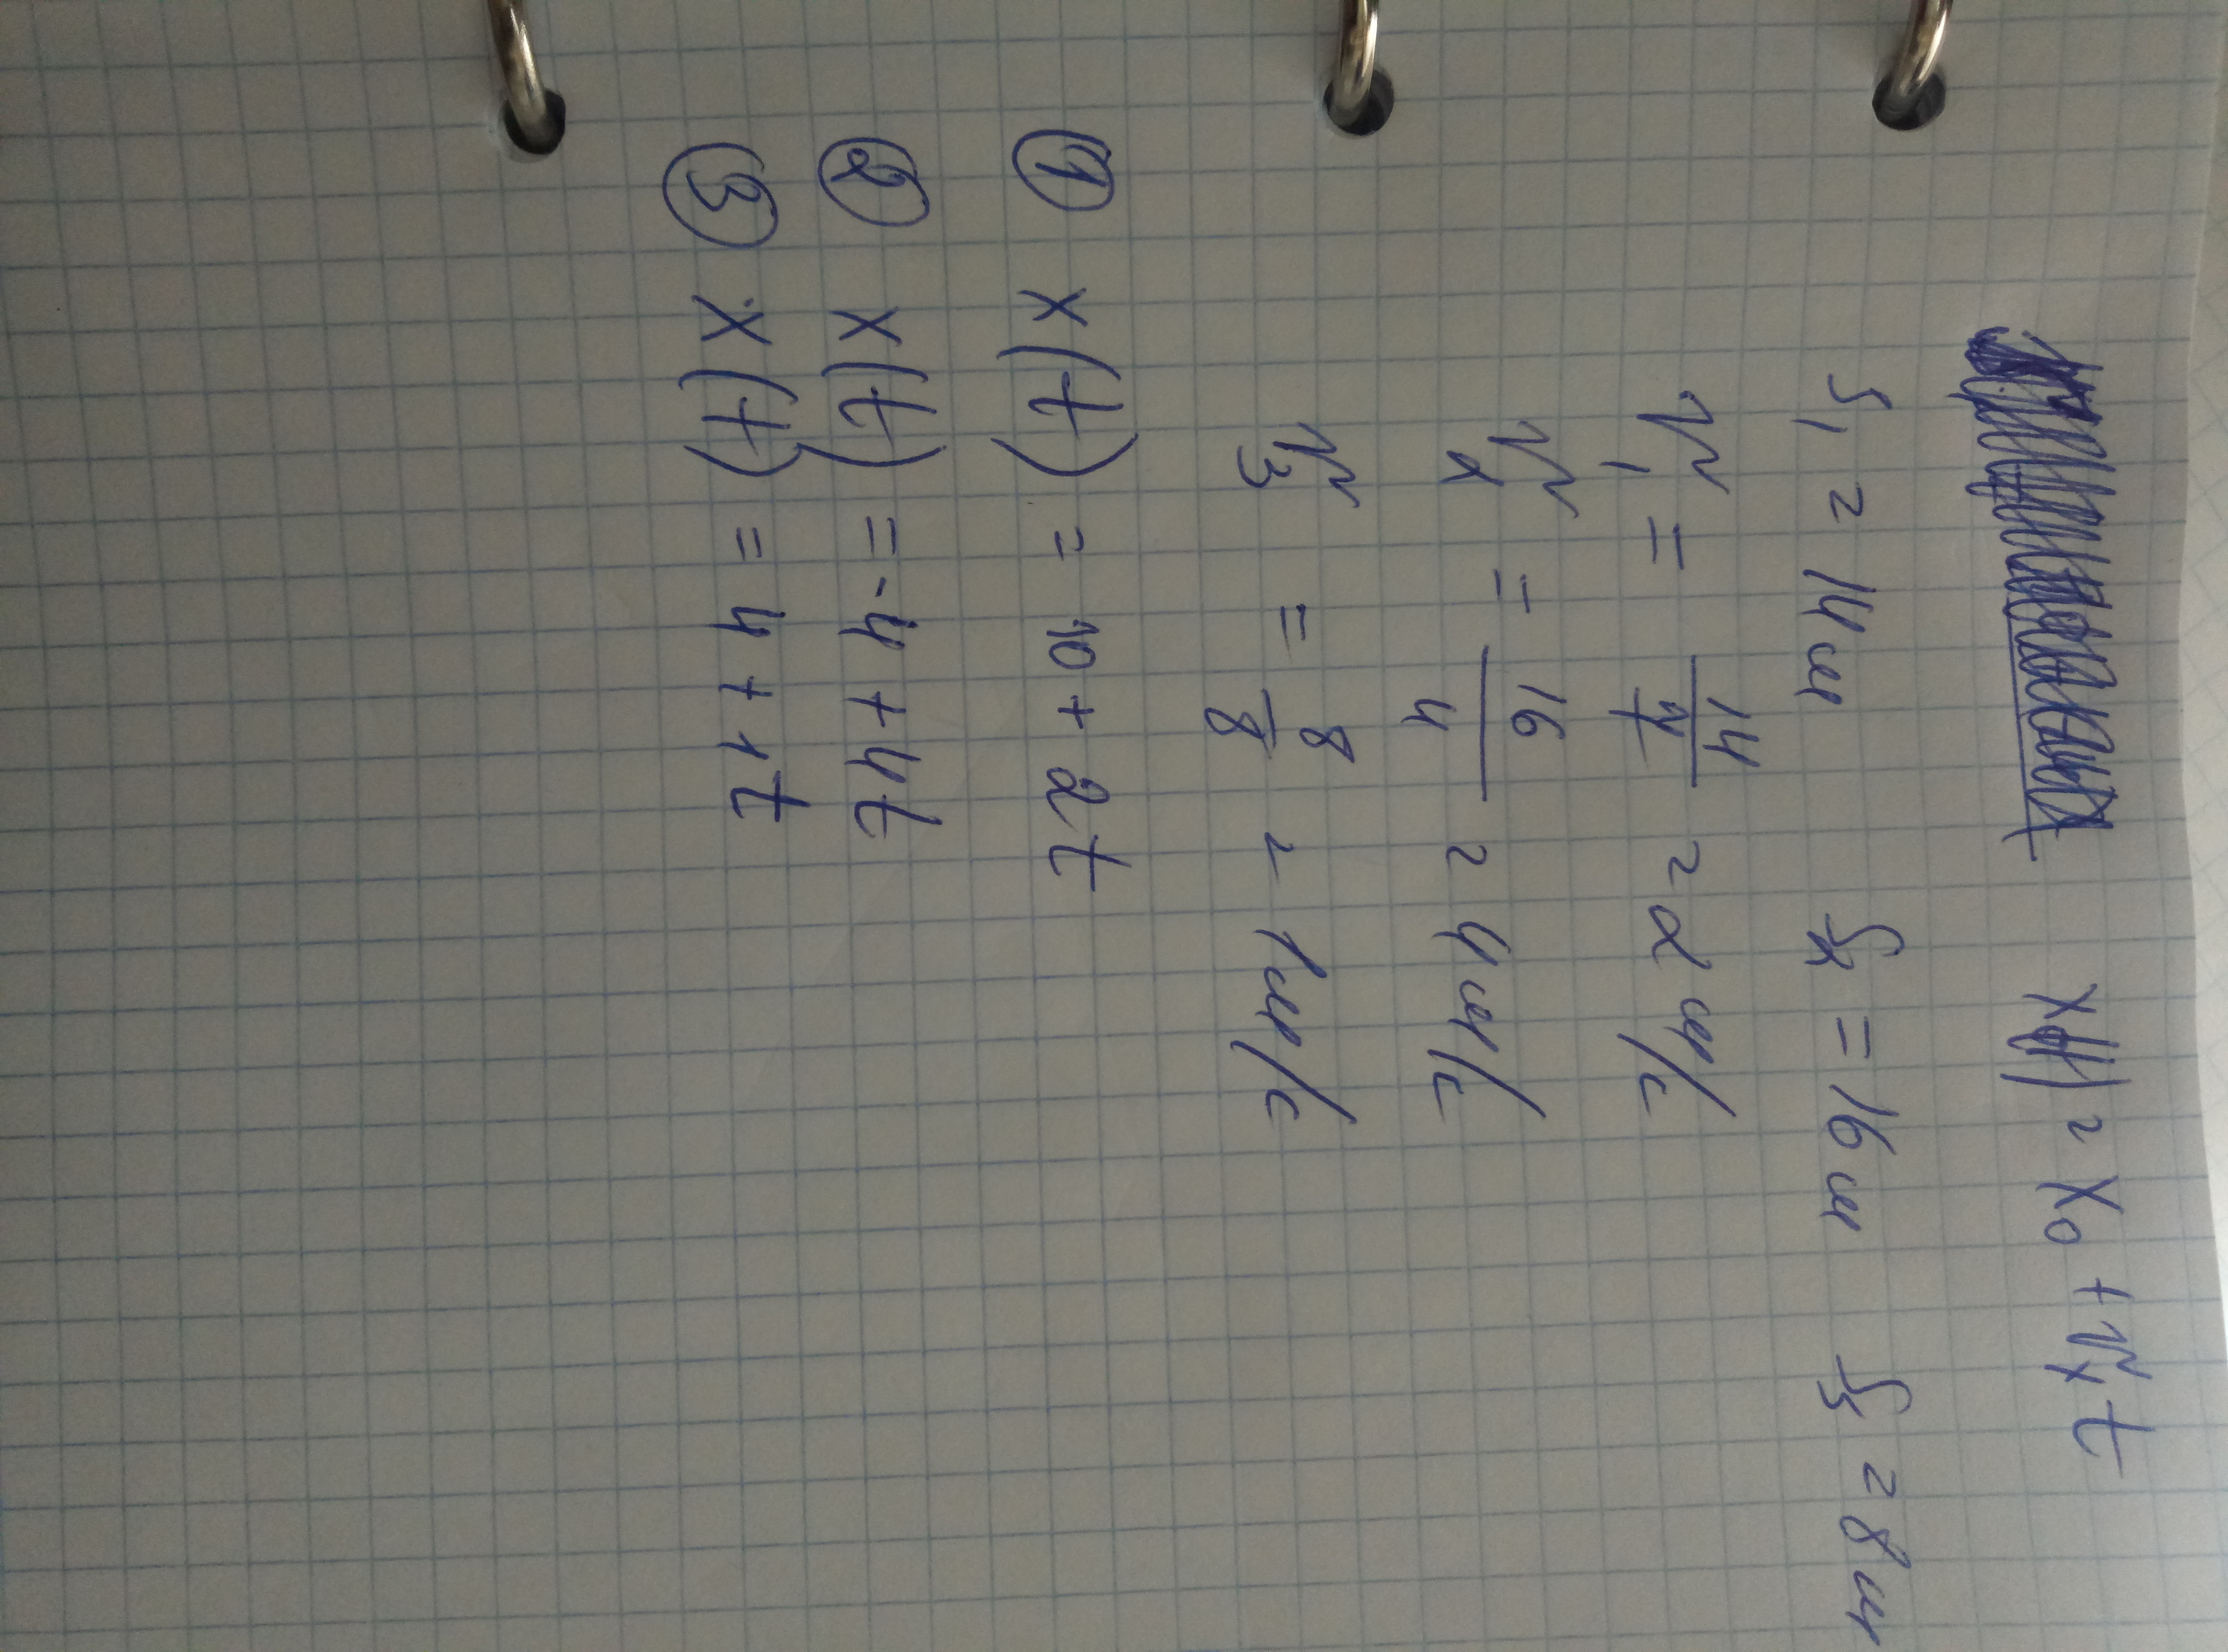 x(t) = x₀ + vₓt
S₁ = 14м S₂ = 16м S₃ = 8м
v₁ = 14/7 = 2 м/с
v₂ = 16/4 = 4 м/с
v₃ = 8/8 = 1 м/с
① x(t) = 10 + 2t
② x(t) = -4 + 4t
③ x(t) = 4 + 1t